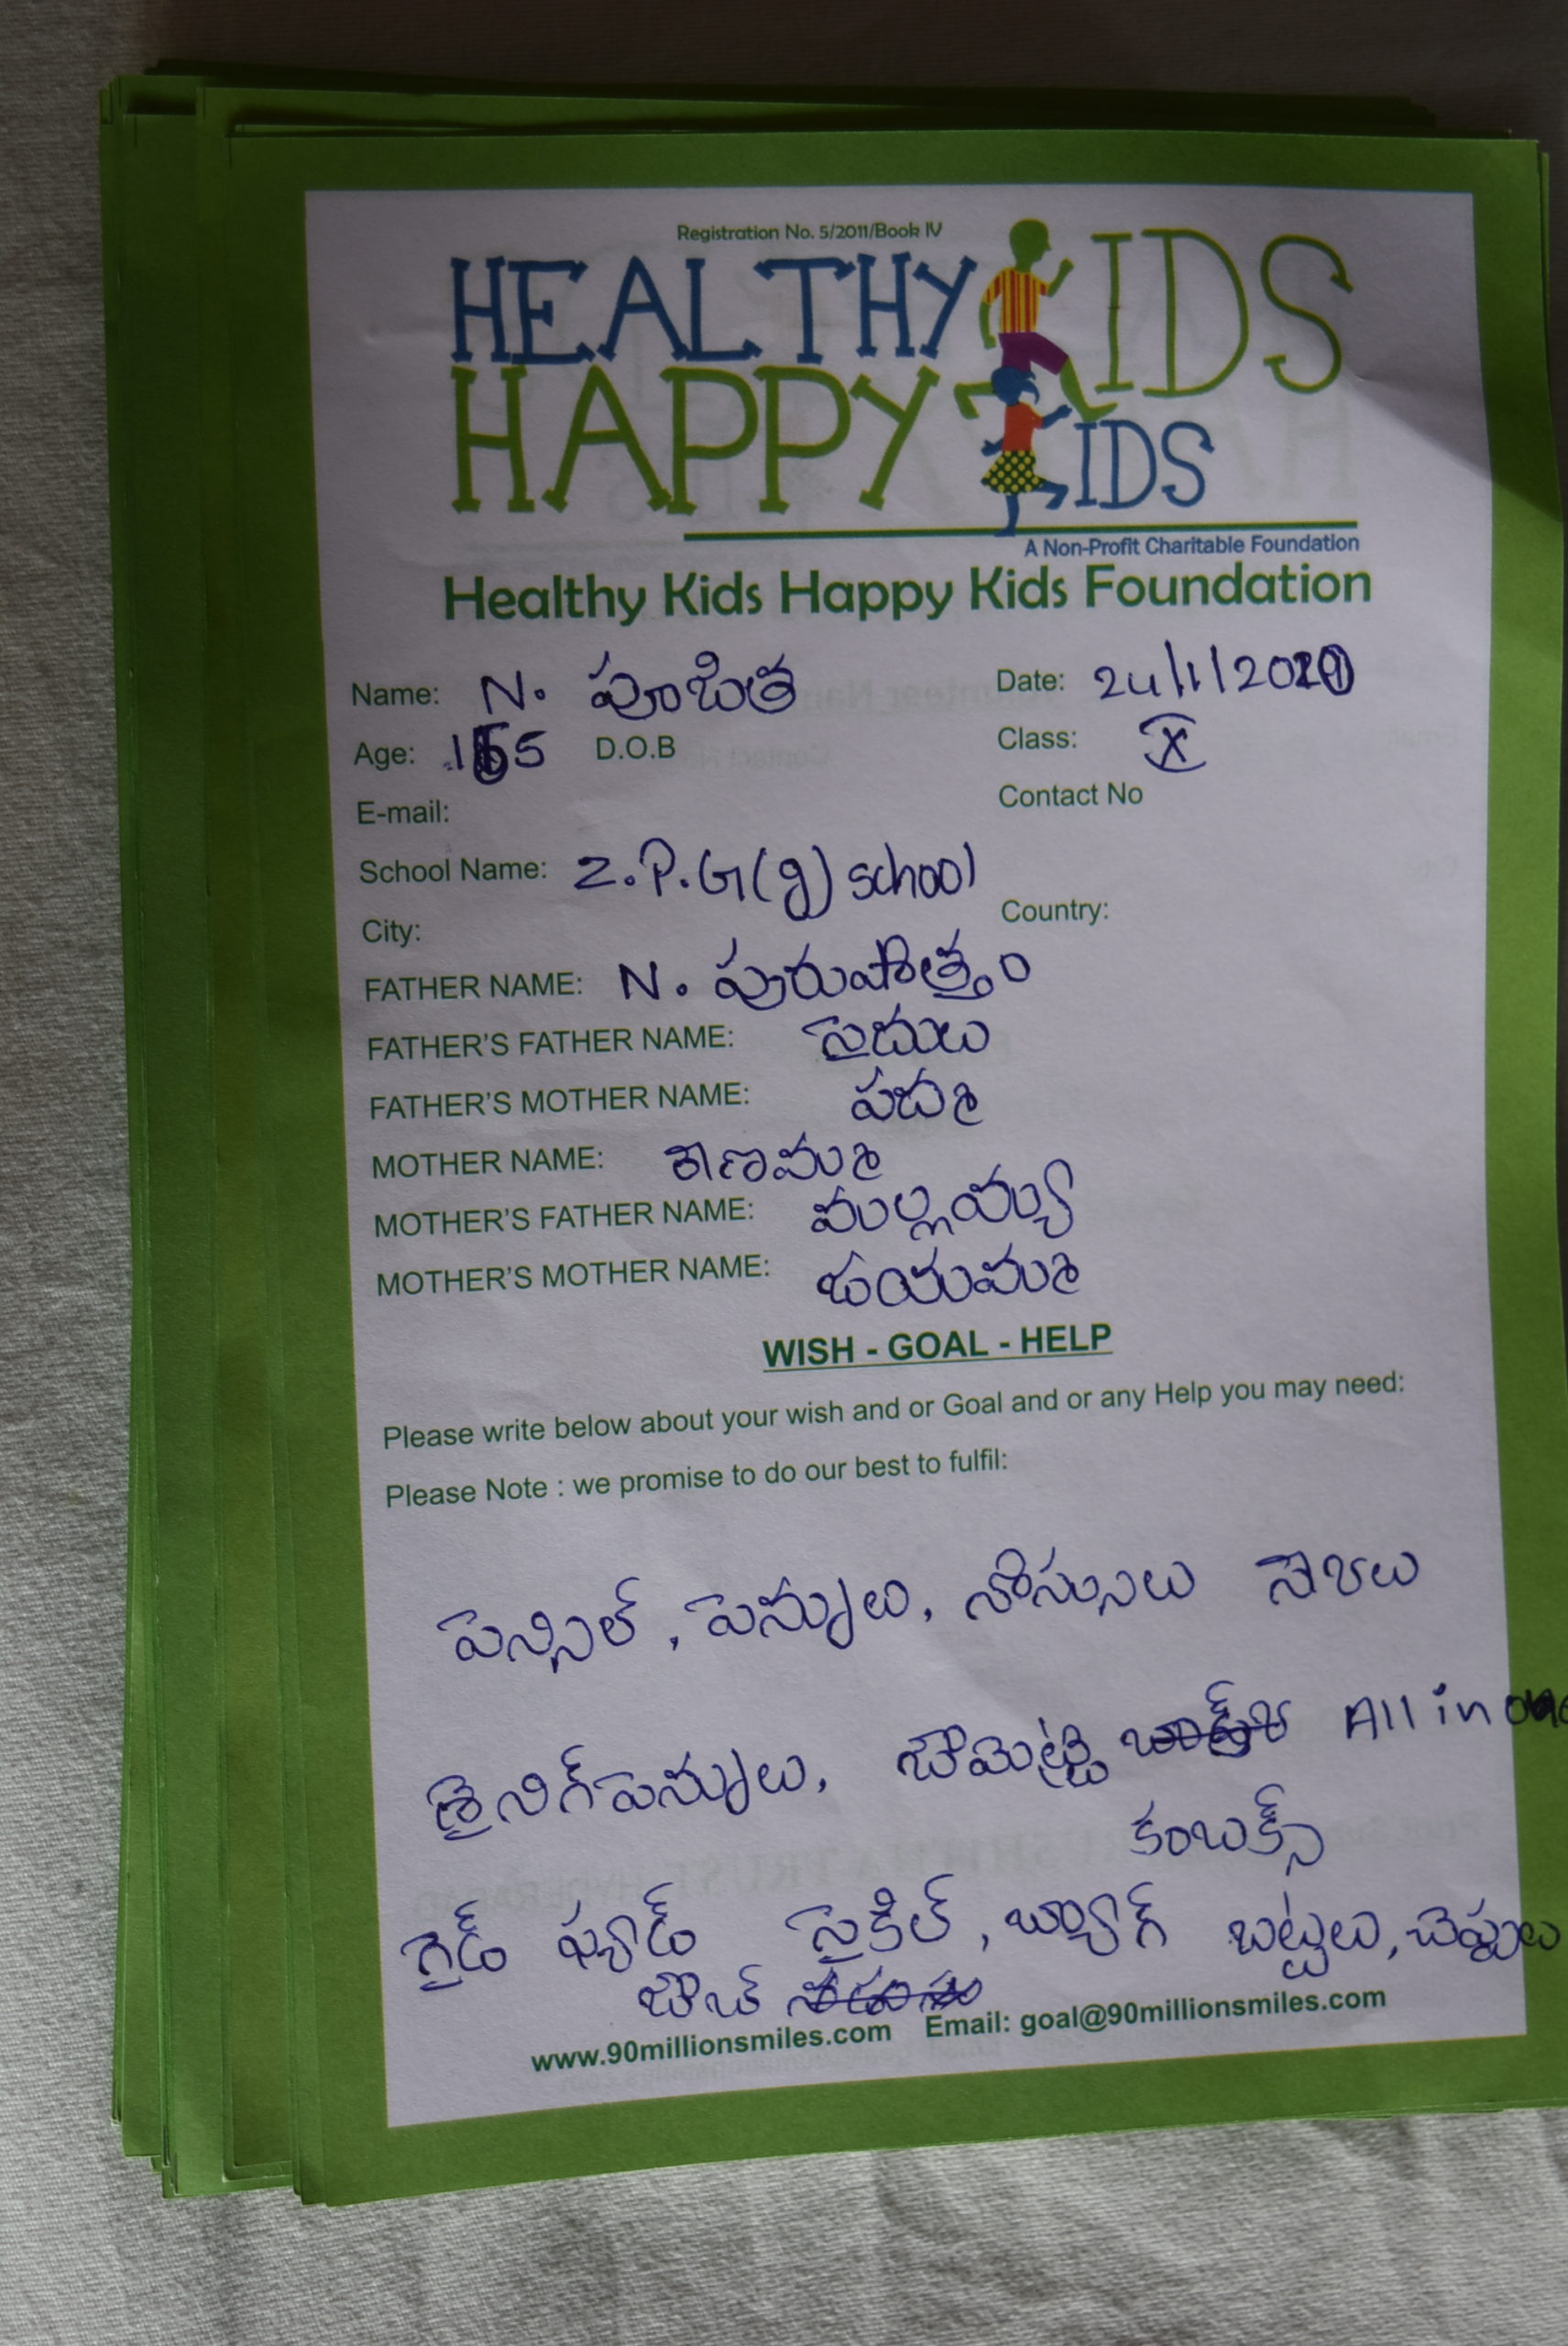 Registration No. 5/2011/Book IV
HEALTHY KIDS
HAPPY KIDS
A Non-Profit Charitable Foundation
Healthy Kids Happy Kids Foundation
Name: N. పూజిత Date: 24/1/2020
Age: 15 D.O.B Class: X
E-mail: Contact No
School Name: Z.P.G(g) school
City: Country:
FATHER NAME: N. పురుషోత్తం
FATHER'S FATHER NAME: సైదులు
FATHER'S MOTHER NAME: పద్మ
MOTHER NAME:
MOTHER'S FATHER NAME: మల్లయ్య
MOTHER'S MOTHER NAME: జయమ్మ
WISH - GOAL - HELP
Please write below about your wish and or Goal and or any Help you may need:
Please Note : we promise to do our best to fulfil:
పెన్సిల్, పెన్నులు,
పెన్నులు, జామెట్రి All in one
గైడ్ ప్యాడ్ సైకిల్, బ్యాగ్ బట్టలు, చెప్పులు
www.90millionsmiles.com Email: goal@90millionsmiles.com